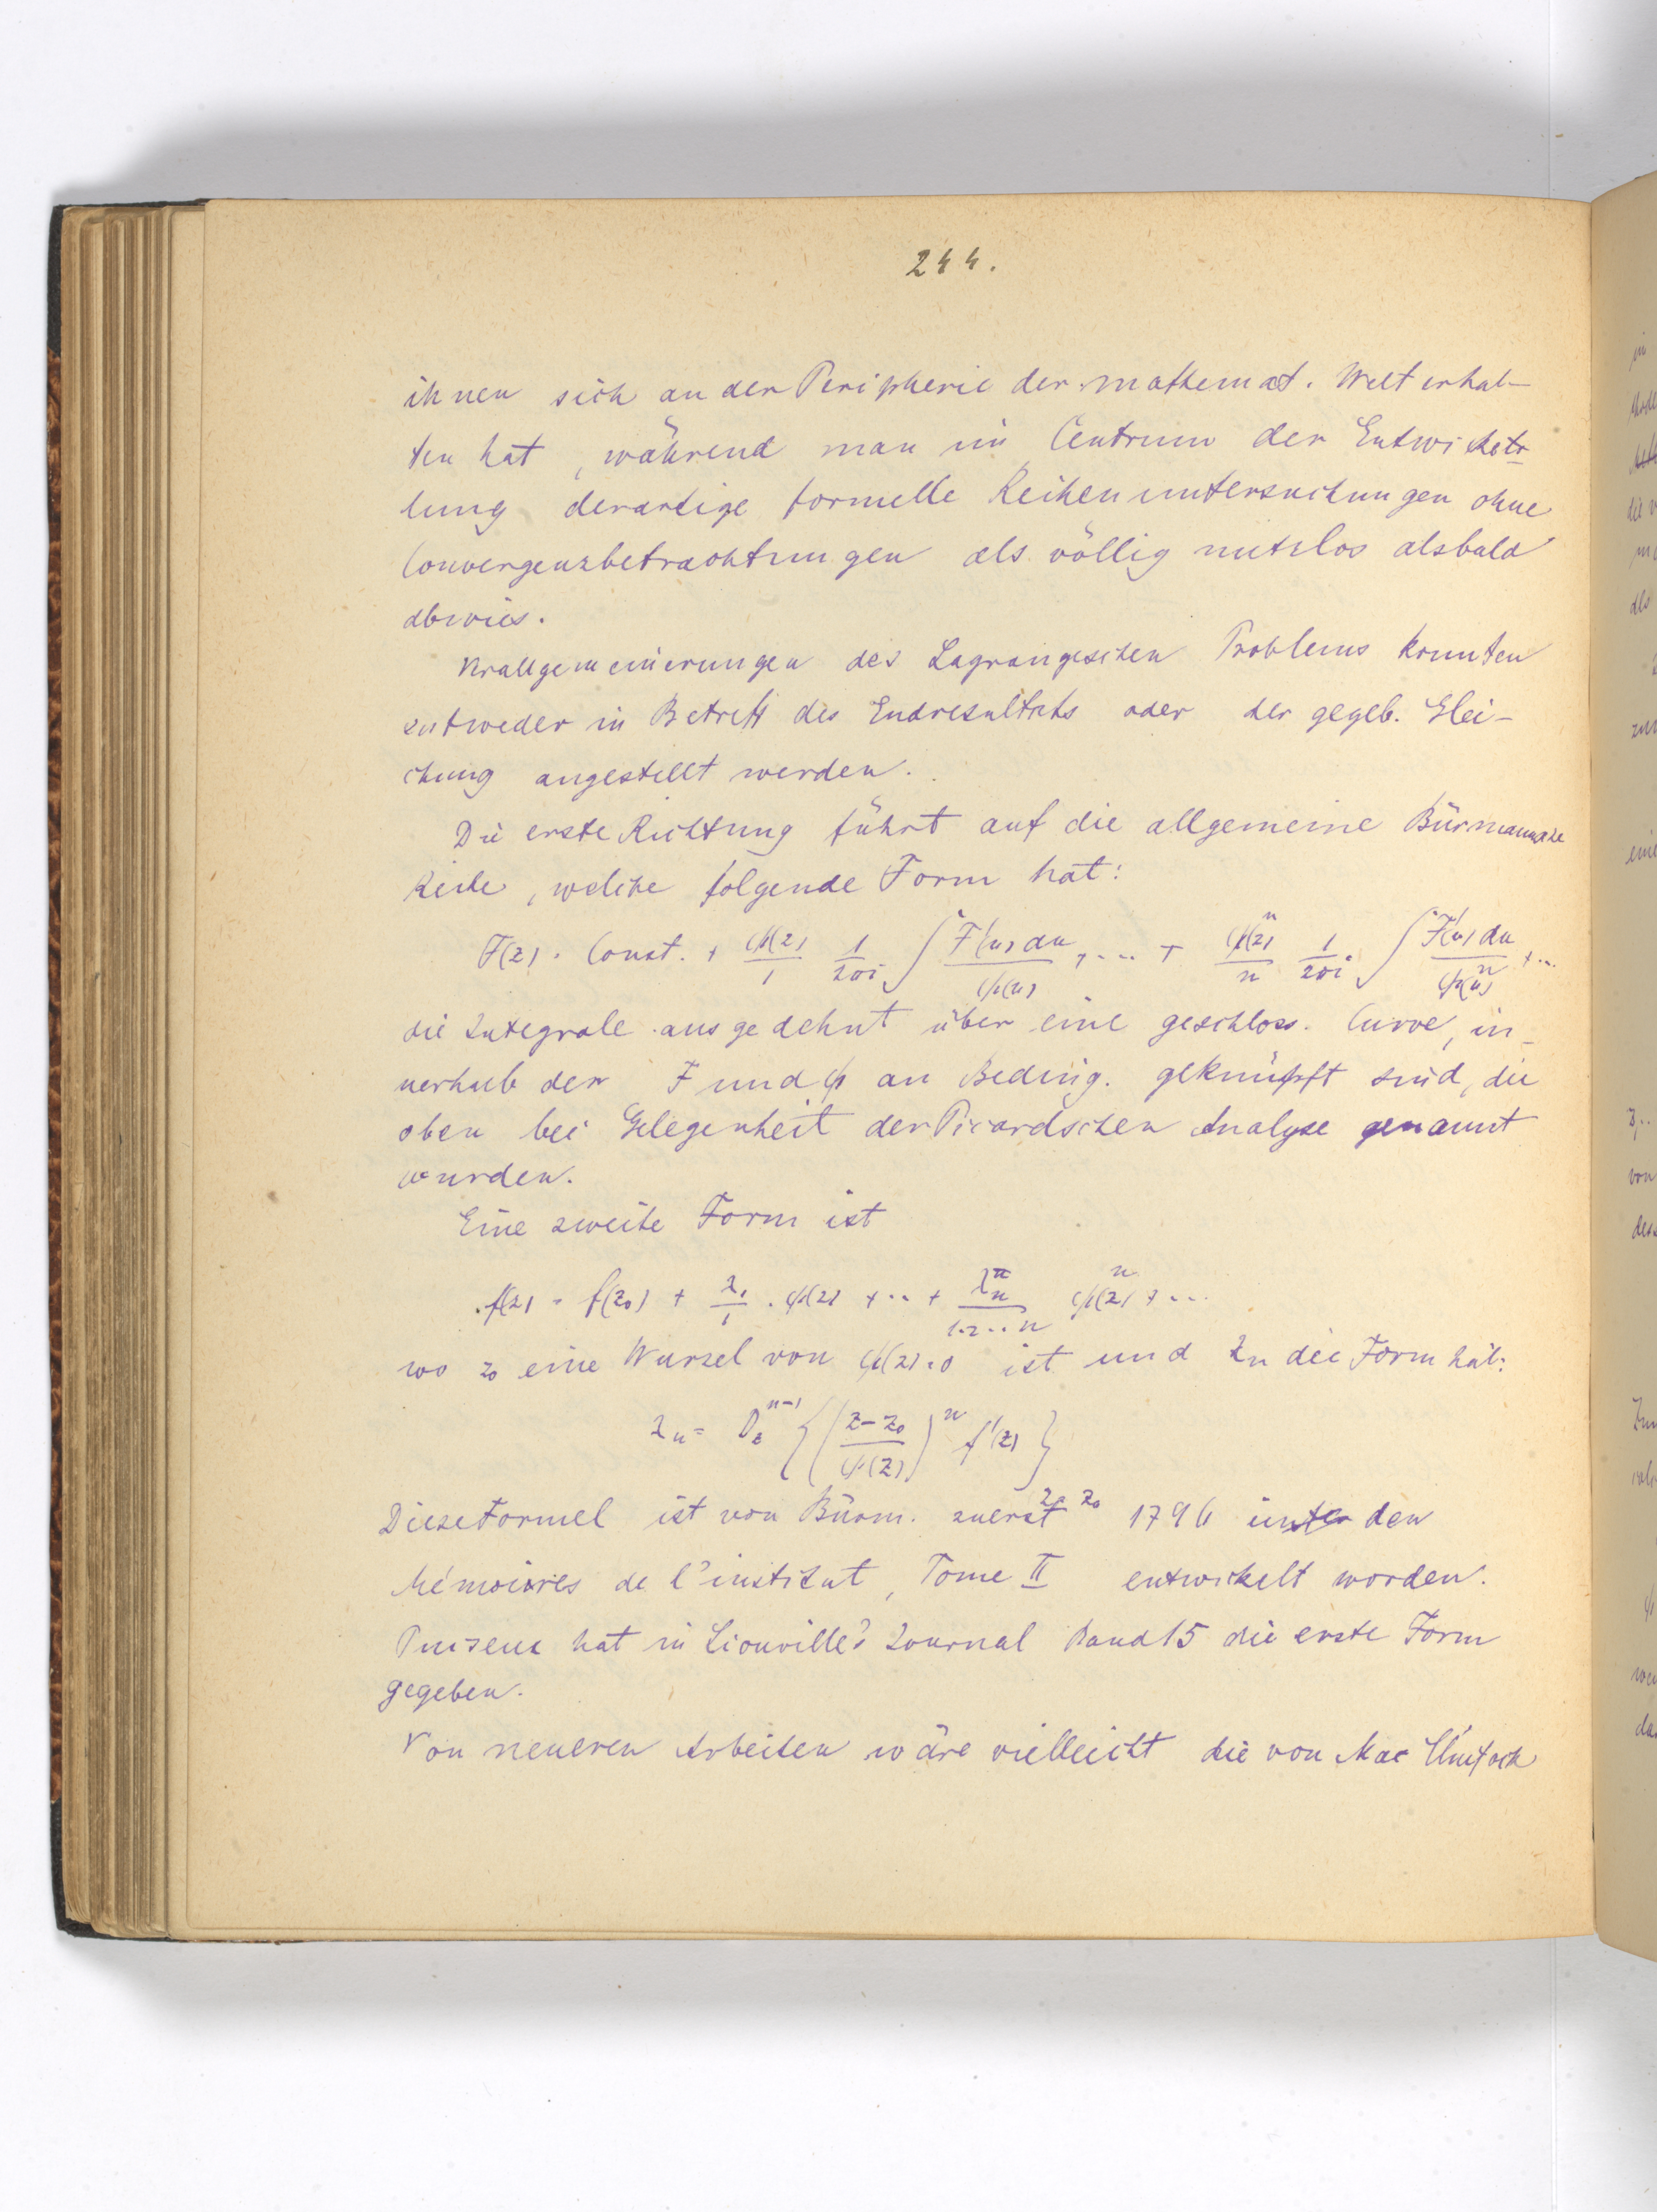 244.
ihnen sich an der Peripherie der mathemat. Welt erhal-
ten hat, während man im Centrum der Entwickel-
lung derartige formelle Reihenuntersuchungen ohne
Convergenzbetrachtungen als völlig nutzlos alsbald
abwies.
Verallgemeinerungen des Lagrangeschen Problems konnten
entweder in Betreff des Endresultats oder der gegeb. Glei-
chung angestellt werden.
Die erste Richtung führt auf die allgemeine Bürmannsche
Reihe, welche folgende Form hat:
F(z) = Const. + ψ(z)/1 1/2πi ∫ F'(u) du/ψ(u) + ... + ψ^n(z)/n 1/2πi ∫ F'(u) du/ψ^n(u) + ...
die Integrale ausgedehnt über eine geschloss. Curve, in-
nerhalb der F und ψ an Beding. geknüpft sind, die
oben bei Gelegenheit der Picardschen Analyse genannt
wurden.
Eine zweite Form ist
f(z) = f(z₀) + λ₁/1 . ψ(z) + .. + λn/1.2...n ψ^n(z) + ...
wo z₀ eine Wurzel von ψ(z)=0 ist und λn die Form hat:
λn = D_z^{n-1} {((z-z₀)/ψ(z))^n f'(z)}
z= z₀
Diese Formel ist von Bürm. zuerst 1796 in den
Mémoires de l'institut, Tome II entwickelt worden.
Puiseux hat in Liouville's Journal Band 15 die erste Form
gegeben.
Von neueren Arbeiten wäre vielleicht die von Mac